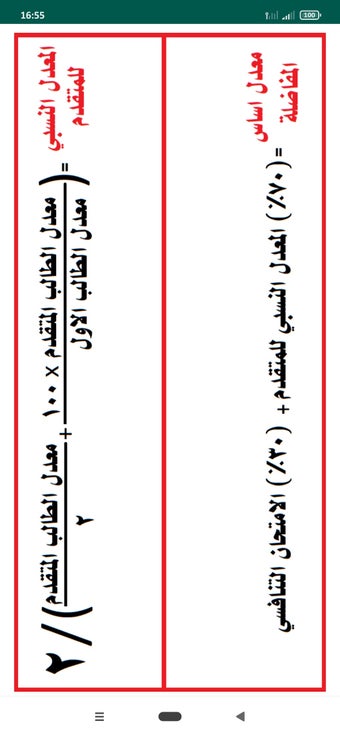 16:55
100
المعدل النسبي
للمتقدم
= ( معدل الطالب المتقدم × ١٠٠
معدل الطالب الاول
+
معدل الطالب المتقدم
٢
) / ٢
معدل اساس
المفاضلة
= (٧٠٪) المعدل النسبي للمتقدم + (٣٠٪) الامتحان التنافسي